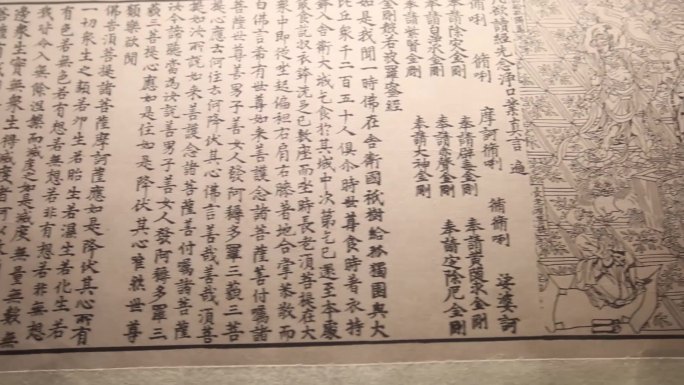 凡欲讀經先念淨口業真言一遍
脩唎 脩唎 摩訶脩唎 脩脩唎 娑婆訶
奉請除災金剛 奉請辟毒金剛 奉請黃隨求金剛
奉請白淨水金剛 奉請赤聲金剛 奉請定除厄金剛
奉請紫賢金剛 奉請大神金剛
金剛般若波羅蜜經
如是我聞一時佛在舍衛國祇樹給孤獨園與大
比丘衆千二百五十人俱尒時世尊食時著衣持
鉢入舍衛大城乞食於其城中次第乞已還至本處
飯食訖收衣鉢洗足已敷座而坐時長老須菩提在大
衆中即從座起偏袒右肩右膝著地合掌恭敬而
白佛言希有世尊如來善護念諸菩薩善付囑諸
菩薩世尊善男子善女人發阿耨多羅三藐三菩
提心應云何住云何降伏其心佛言善哉善哉須菩
提如汝所說如來善護念諸菩薩善付囑諸菩薩
汝今諦聽當為汝說善男子善女人發阿耨多羅三
藐三菩提心應如是住如是降伏其心唯然世尊
願樂欲聞
佛告須菩提諸菩薩摩訶薩應如是降伏其心所有
一切衆生之類若卵生若胎生若濕生若化生若
有色若無色若有想若無想若非有想若非無想
我皆令入無餘涅槃而滅度之如是滅度無量無數無
邊衆生實無衆生得滅度者何以故